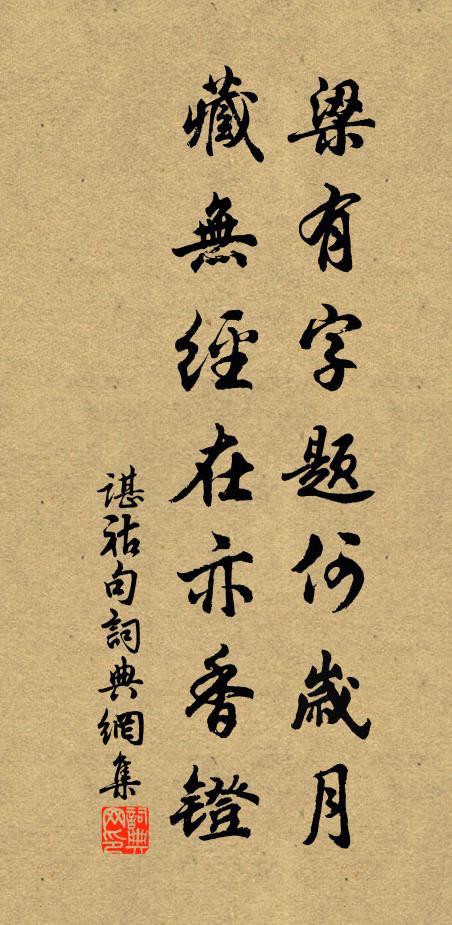 梁有字題何歲月
藏無經在亦香鐙
諶祜句詞典網集
詞典网印